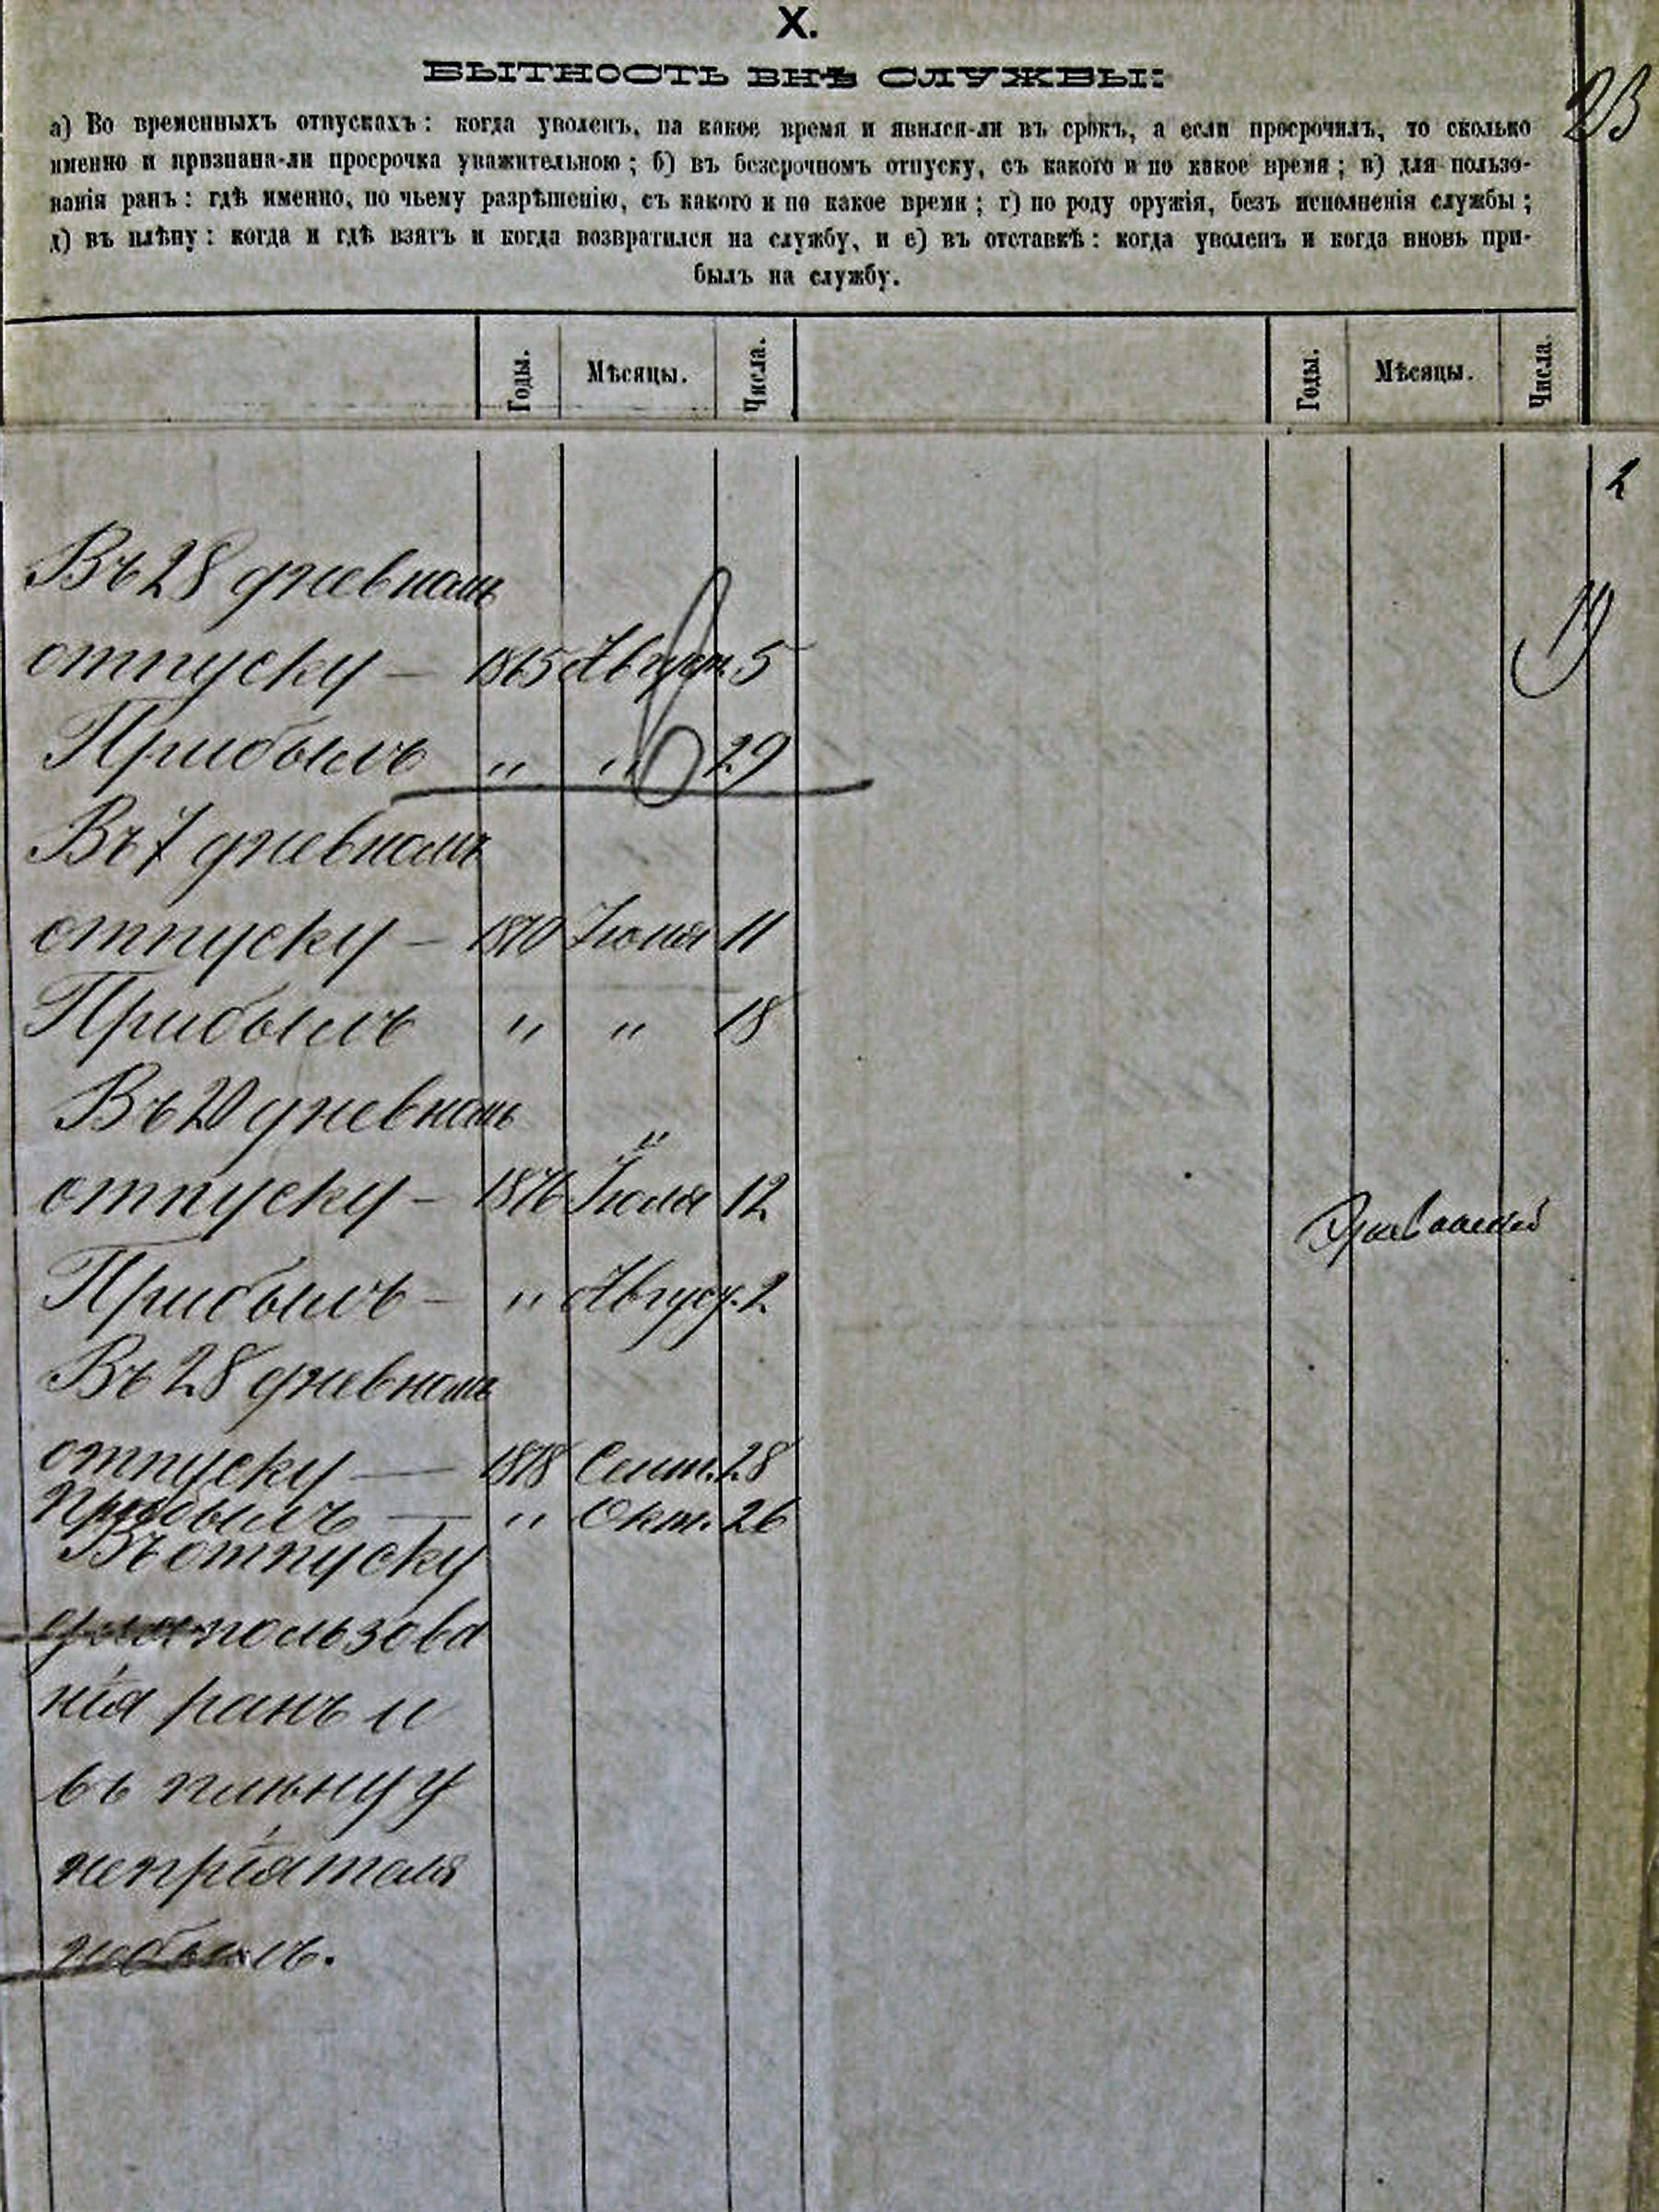 X.
БЫТНОСТЬ ВНѢ СЛУЖБЫ:
23
а) Во временныхъ отпускахъ: когда уволенъ, на какое время и явился-ли въ срокъ, а если просрочилъ, то сколько
именно и признана-ли просрочка уважительною; б) въ безсрочномъ отпуску, съ какого и по какое время; в) для пользо-
ванія ранъ: гдѣ именно, по чьему разрѣшенію, съ какого и по какое время; г) по роду оружія, безъ исполненія службы;
д) въ плѣну: когда и гдѣ взятъ и когда возвратился на службу, и е) въ отставкѣ: когда уволенъ и когда вновь при-
былъ на службу.
Годы. Мѣсяцы. Числа. Годы. Мѣсяцы. Числа.
Въ 28 дневномъ
отпуску — 1865 Август. 5
Прибылъ " " 29
Въ 7 дневномъ
отпуску — 1870 11
Прибылъ " " 18
Въ 20 дневномъ
отпуску — 1876 Іюля 12
Прибылъ — " Август. 2
Въ 28 дневномъ
отпуску — 1878 Сент. 28
Прибылъ — " Окт. 26
Въ отпуску
для пользова
нія ранъ и
въ плѣну у
непріятеля
небылъ.